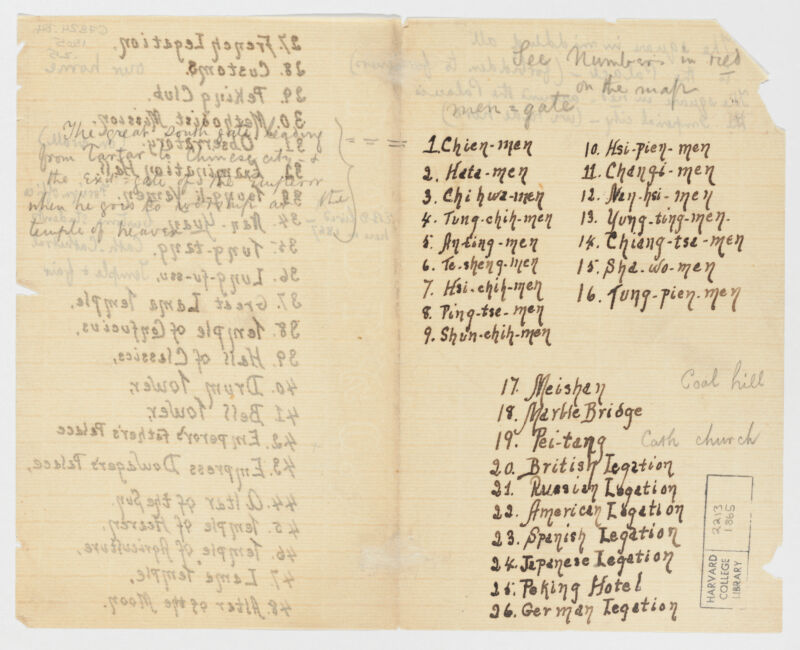 See Numbers in red
on the map
men = gate
The great South gate leading
from Tartar to Chinese city &
the Exit gate of the Emperor
when he goes to worship at the
temple of heaven
1. Chien-men
2. Hata-men
3. Chihwa-men
4. Tung-chih-men
5. An-ting-men
6. Te-sheng-men
7. Hsi-chih-men
8. Ping-tse-men
9. Shun-chih-men
10. Hsi-pien-men
11. Changi-men
12. Nan-hsi-men
13. Yung-ting-men.
14. Chiang-tsa-men
15. Sha-wo-men
16. Tung-pien-men
17. Meishan Coal hill
18. Marble Bridge
19. Pei-tang Cath church
20. British Legation
21. Russian Legation
22. American Legation
23. Spanish Legation
24. Japanese Legation
25. Peking Hotel
26. German Legation
HARVARD
COLLEGE
LIBRARY
2213
1865
27. French Legation,
28. Customs. our home
29. Peking Club
30. Methodist Mission.
31. Observatory
32. Examination Hall
34. Nan Yuan
35. Tung-tang.
36. Lung-fu-ssu. Temple & fair
37. Great Lama Temple,
38. Temple of Confucius,
39. Hall of Classics,
40. Drum Tower,
41 Bell Tower,
42. Emperor's father's Palace
43. Empress Dowager's Palace,
44. Altar of the Sun
45. Temple of Heaven,
46. Temple of Agriculture,
47 Lama Temple,
48. Altar of the Moon.